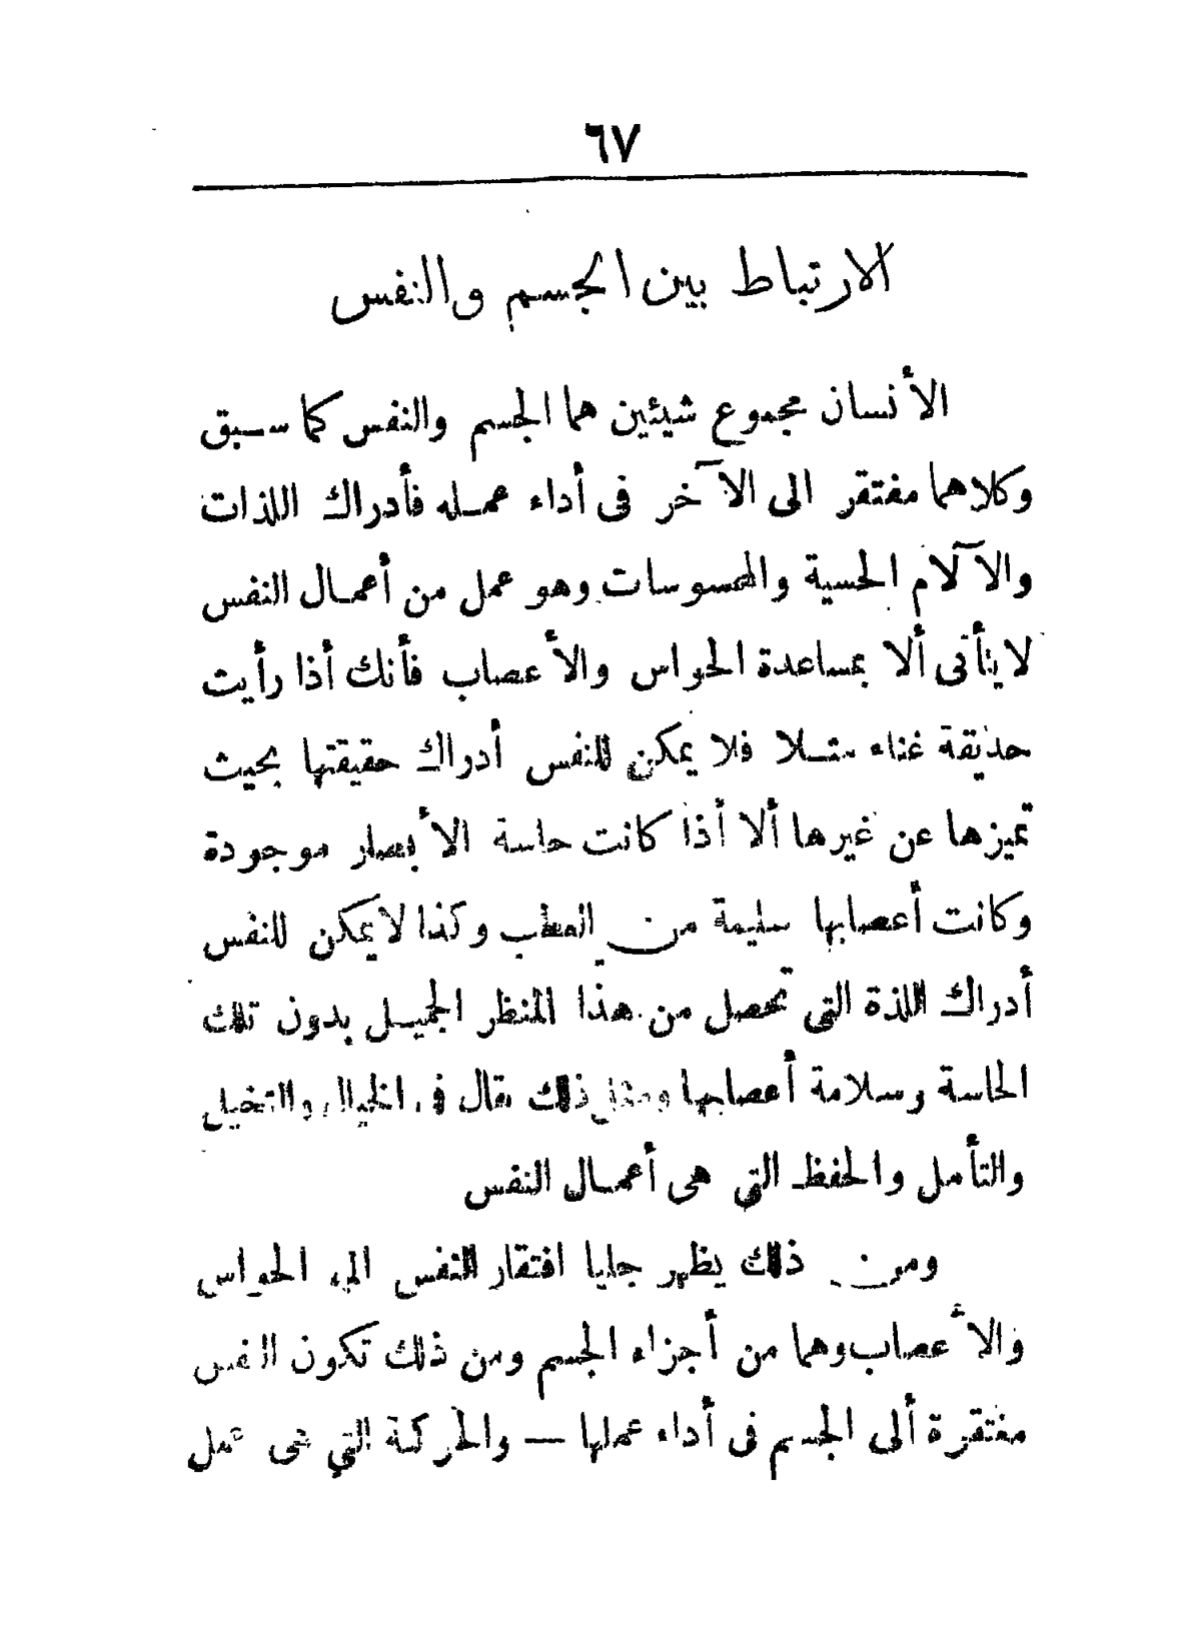 ٦٧
الارتباط بين الجسم والنفس
الأنسان مجموع شيئين هما الجسم والنفس كما سبق
وكلاهما مفتقر الى الآخر فى أداء عمله فأدراك اللذات
والآلام الحسية والمحسوسات وهو عمل من أعمال النفس
لا يتأتى ألا بمساعدة الحواس والأعصاب فأنك أذا رأيت
حديقة غناء مثلا فلا يمكن للنفس أدراك حقيقتها بحيث
تميزها عن غيرها ألا أذا كانت حاسة الأبصار موجودة
وكانت أعصابها سليمة من العطب وكذا لا يمكن للنفس
أدراك اللذة التى تحصل من هذا المنظر الجميل بدون تلك
الحاسة وسلامة أعصابها ومثل ذلك يقال فى الخيال والتخيل
والتأمل والحفظ التى هى أعمال النفس
ومن ذلك يظهر جليا افتقار النفس الى الحواس
والأعصاب وهما من أجزاء الجسم ومن ذلك تكون النفس
مفتقرة ألى الجسم فى أداء عملها — والحركة التي هى عمل